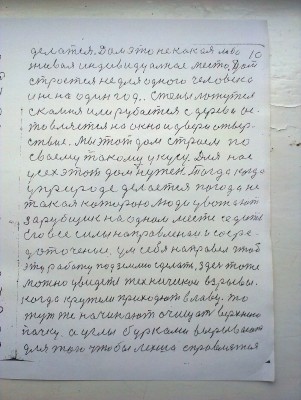 делается. Дом это не какая либо 10
живая индивидуальное место, Дом
строется не для одного человека
и не на один год.. Стены ложутся
с камня или рубается с дерева ос-
товляется на окно и двери отвер-
ствие. Мы этот дом строем по
своему такому укусу. Для нас
усех этот дом нужен. Тогда когда
у природе делается погода не
такая которою люди у
зарубщик на одном месте
его все силы направлены и сосре-
доточены. ум себя направел чтоб
эту работу под землю сделать, здесь тоже
можно увидеть технически взрывы.
когда крутели приходют в лаву. то
тут же начинают очищать верхнюю
пачку. а углы бурками вырывают
для того чтобы легша справлятся